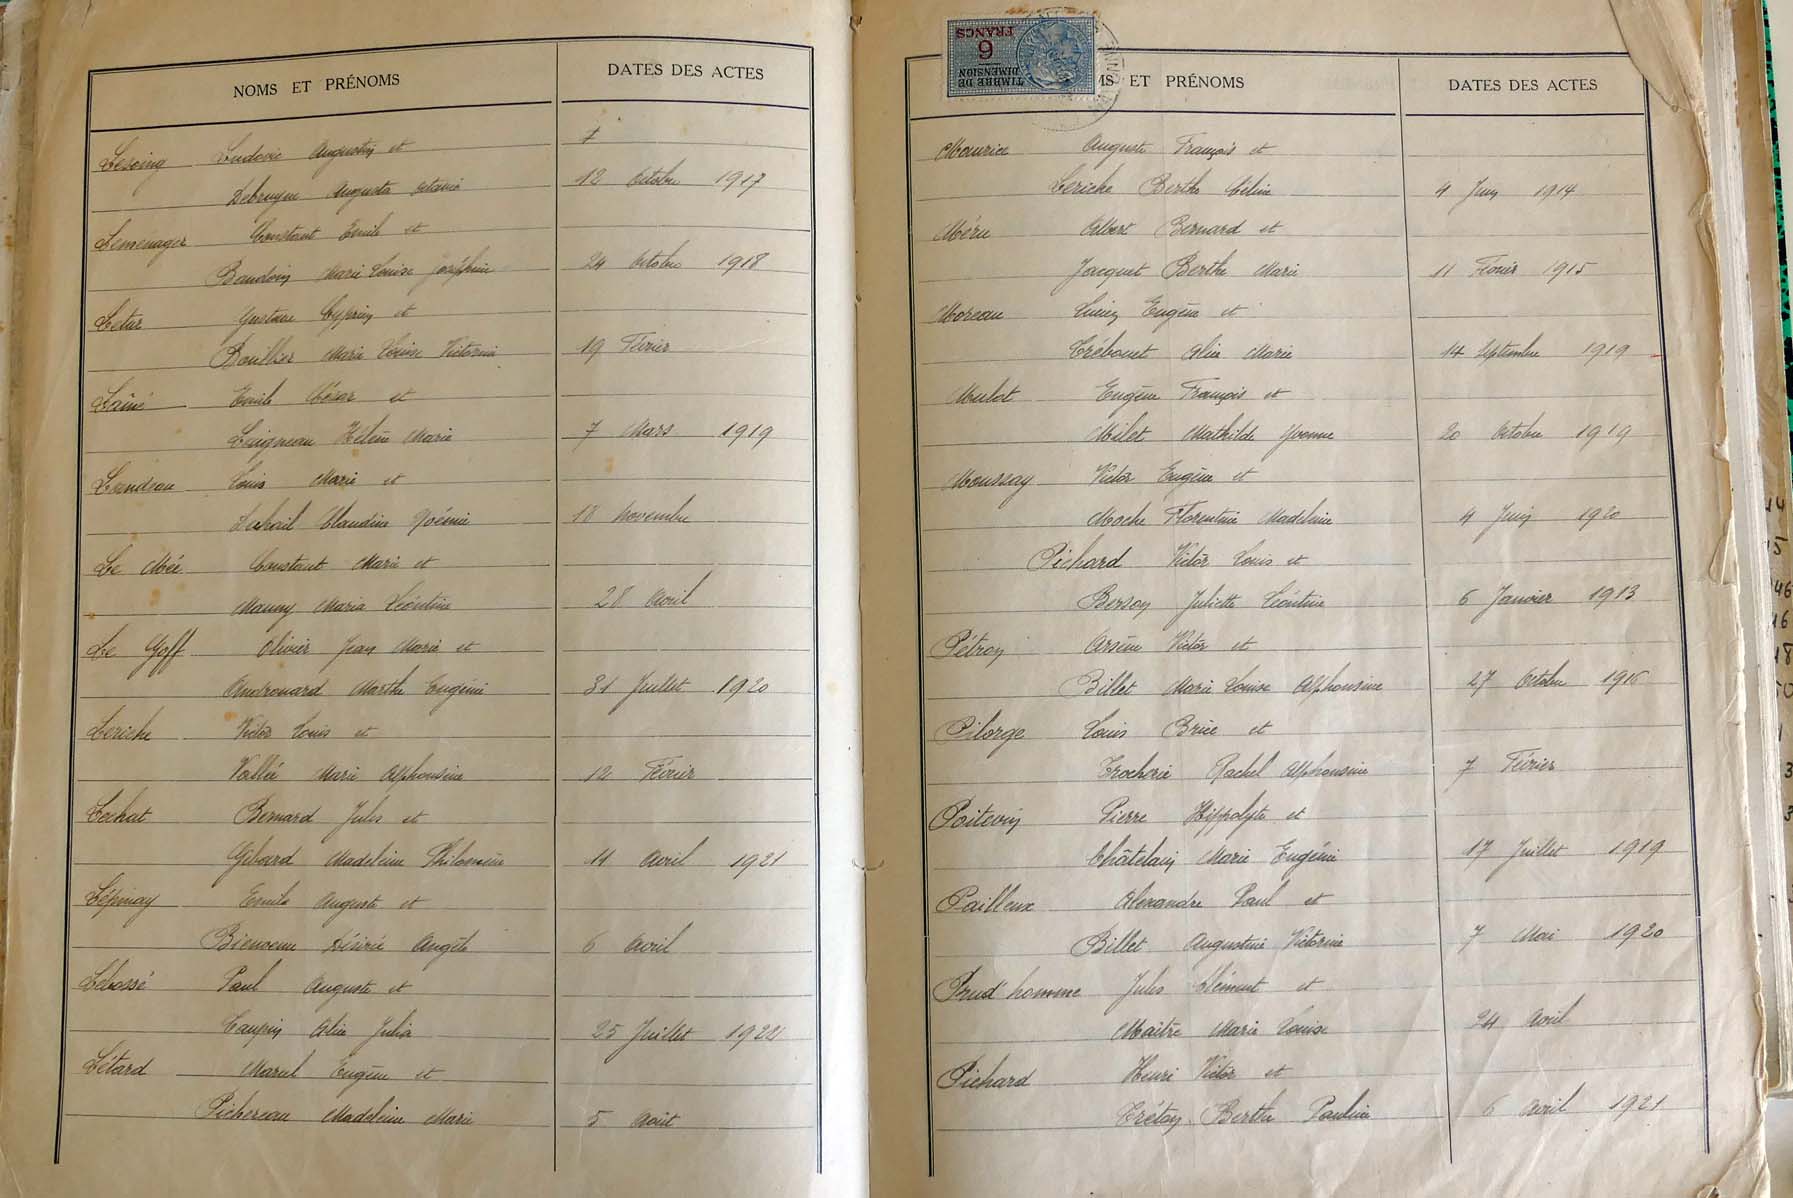 NOMS ET PRÉNOMS DATES DES ACTES
Lesoing Ludovic Augustin et
Debruyne Augusta Octavie 12 Octobre 1917
Leménager Constant Emile et
Baudoin Marie Louise Joséphine 24 Octobre 1918
Letur Gustave Cyprien et
Bouillier Marie Louise Victorine 19 Février
Lainé Emile César et
Loigneau Hélène Marie 7 Mars 1919
Landeau Louis Marie et
Claudine Noémie 18 Novembre
Le Mée Constant Marie et
Mauny Maria Léontine 28 Avril
Le Goff Olivier Jean Marie et
Androuard Marthe Eugénie 31 Juillet 1920
Leriche Victor Louis et
Vallée Marie Alphonsine 12 Février
Lechat Bernard Jules et
Gibard Madeleine Philomène 11 Avril 1921
Lépinay Emile Auguste et
Bienvenu Désirée Angèle 6 Avril
Lebossé Paul Auguste et
Taupin Alice Julia 25 Juillet 1922
Létard Marcel Eugène et
Pichereau Madeleine Marie 5 Août
TIMBRE DE DIMENSION
6 FRANCS
MS ET PRÉNOMS DATES DES ACTES
Maurice Auguste François et
Leriche Berthe Céline 9 Juin 1914
Méru Albert Bernard et
Jacquet Berthe Marie 11 Février 1915
Moreau Lucien Eugène et
Trébouet Alice Marie 14 Septembre 1919
Mulot Eugène François et
Milet Mathilde Yvonne 20 Octobre 1919
Moussay Victor Eugène et
Moche Florentine Madeleine 9 Juin 1920
Pichard Victor Louis et
Bersoy Juliette Léontine 6 Janvier 1913
Pétron Arsène Victor et
Billet Marie Louise Alphonsine 27 Octobre 1916
Pilorge Louis Brice et
Trocherie Rachel Alphonsine 7 Février
Poitevin Pierre Hippolyte et
Châtelain Marie Eugénie 17 Juillet 1919
Pailleux Alexandre Paul et
Billet Augustine Victorine 7 Mai 1920
Prud'homme Jules Clément et
Maître Marie Louise 24 Août
Pichard Henri Victor et
Crétoy Berthe Pauline 6 Avril 1921